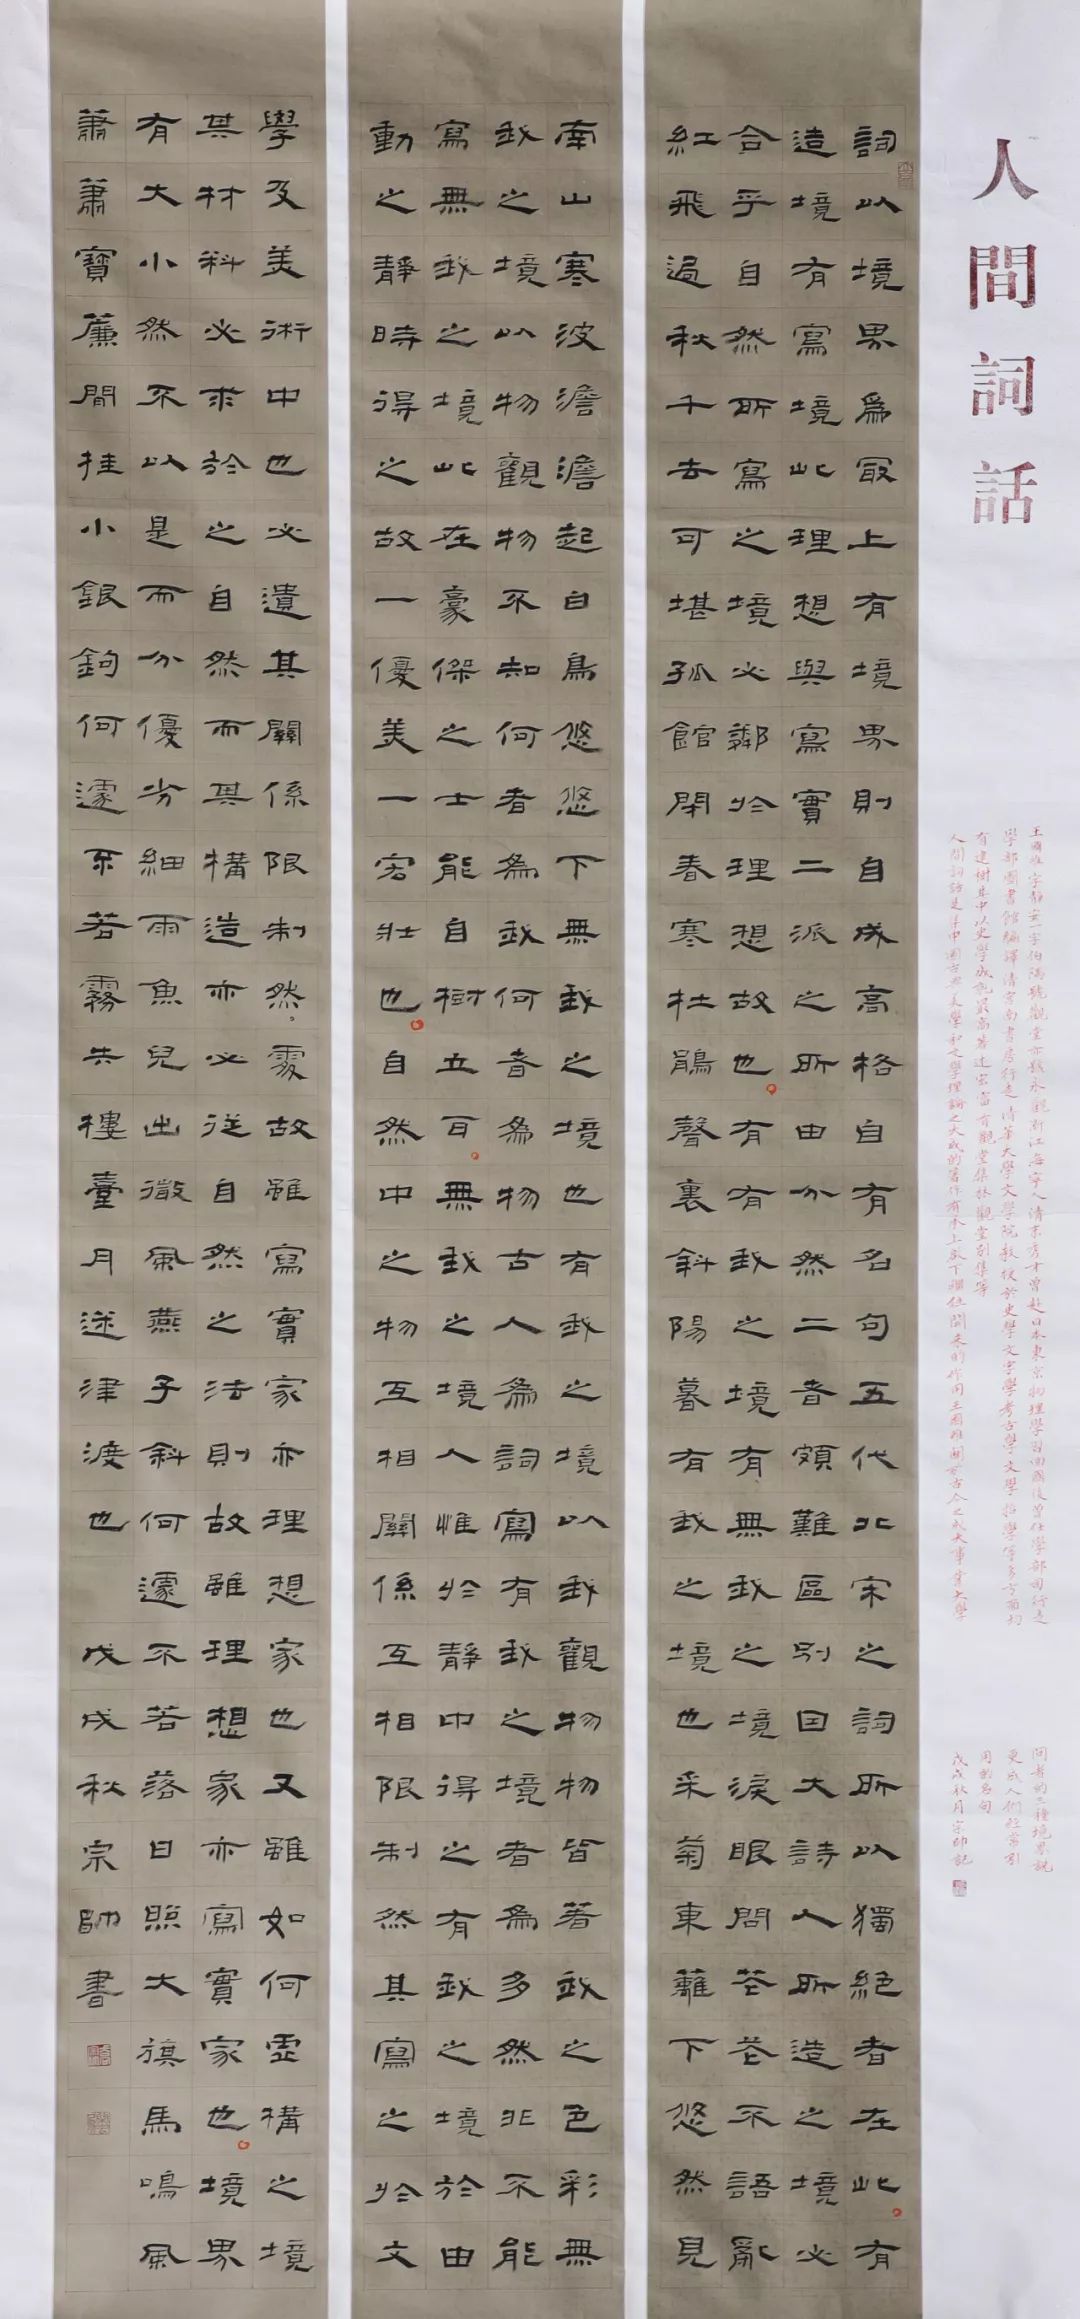 人間詞話
王國維字靜安一字伯隅號觀堂亦號永觀浙江海寧人清末秀才曾赴日本東京物理學習回國後曾任學部司行走
學部圖書館編譯清宮南書房行走清華大學文學院教授於史學文字學考古學文學哲學等多方面均
有建樹其中以史學成就最高著述宏富有觀堂集林觀堂別集等
人間詞話是集中國古典美學和文學理論之大成的著作有承上啟下繼往開來的作用王國維關於古今之成大事業大學
問者的三種境界說
更成人們經常引
用的名句
戊戌秋月宗帥記
詞以境界為最上有境界則自成高格自有名句五代北宋之詞所以獨絕者在此有
造境有寫境此理想與寫實二派之所由分然二者頗難區別因大詩人所造之境必
合乎自然所寫之境必鄰於理想故也有有我之境有無我之境淚眼問花花不語亂
紅飛過秋千去可堪孤館閉春寒杜鵑聲裏斜陽暮有我之境也采菊東籬下悠然見
南山寒波澹澹起白鳥悠悠下無我之境也有我之境以我觀物物皆著我之色彩無
我之境以物觀物不知何者為我何者為物古人為詞寫有我之境者為多然非不能
寫無我之境此在豪傑之士能自樹立耳無我之境人惟於靜中得之有我之境於由
動之靜時得之故一優美一宏壯也自然中之物互相關係互相限制然其寫之於文
學及美術中也必遺其關係限制然處故雖寫實家亦理想家也又雖如何虛構之境
其材料必求於之自然而其構造亦必從自然之法則故雖理想家亦寫實家也境界
有大小然不以是而分優劣細雨魚兒出微風燕子斜何遽不若落日照大旗馬鳴風
蕭蕭寶簾閒挂小銀鉤何遽不若霧失樓臺月迷津渡也 戊戌秋宗帥書